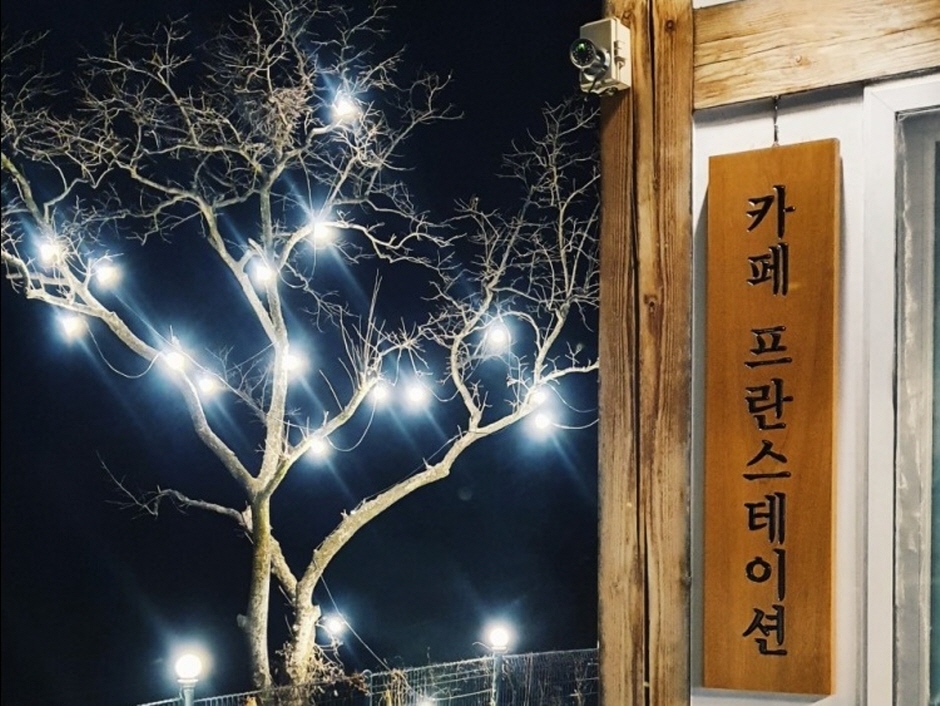 카페 프란스테이션